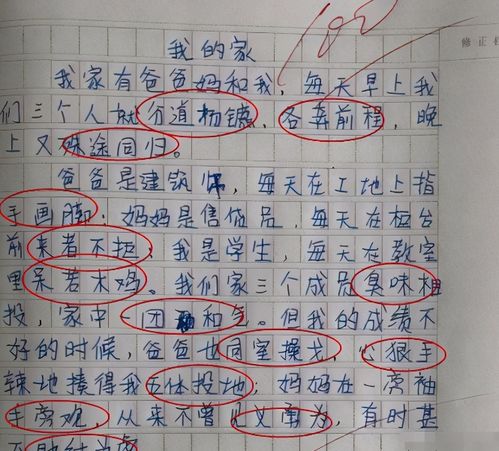 100
修正
我的家
我家有爸爸妈和我,每天早上我
们三个人就分道杨镳,各奔前程,晚
上又殊途同归。
爸爸是建筑师,每天在工地上指
手画脚;妈妈是售货员,每天在柜台
前来者不拒;我是学生,每天在教室
里呆若木鸡。我们家三个成员臭味相
投,家中一团和气。但我的成绩不
好的时候,爸爸也同室操戈,心狠手
辣地揍得我五体投地;妈妈在一旁袖
手旁观,从来不曾见义勇为,有时甚